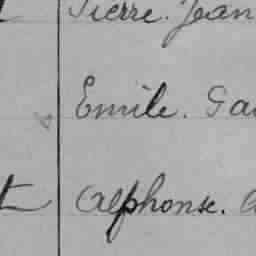 Pierre. Jean
Emile. Ga
Alphonse.